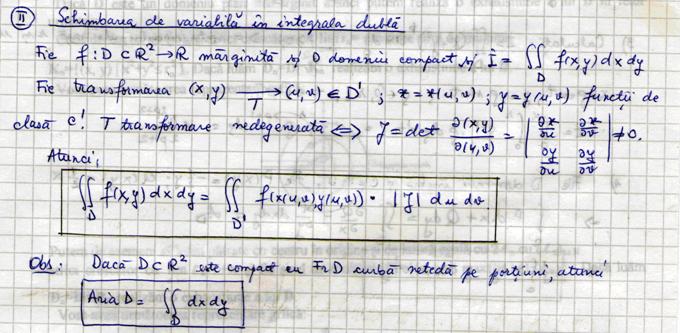 II Schimbarea de variabilă în integrala dublă
Fie f: D ⊂ R² → R mărginită și D domeniu compact și I = ∬_D f(x,y) dx dy
Fie transformarea (x,y) →_T (u,v) ∈ D' ; x = x(u,v) ; y = y(u,v) funcții de
clasă C¹. T transformare nedegenerată ⇔ J = det ∂(x,y)/∂(u,v) = | ∂x/∂u ∂x/∂v ; ∂y/∂u ∂y/∂v | ≠ 0.
Atunci;
∬_D f(x,y) dx dy = ∬_D' f(x(u,v), y(u,v)) · |J| du dv
Obs: Dacă D ⊂ R² este compact cu Fr D curbă netedă pe porțiuni, atunci
Aria D = ∬_D dx dy